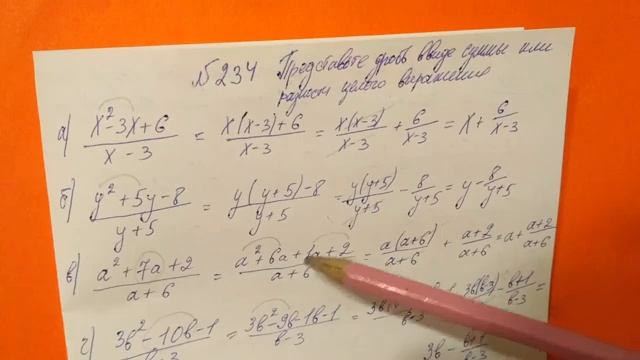 №234 Представьте дробь в виде суммы или
разности целого выражения
а) (x²-3x+6)/(x-3) = (x(x-3)+6)/(x-3) = x(x-3)/(x-3) + 6/(x-3) = x + 6/(x-3)
б) (y²+5y-8)/(y+5) = (y(y+5)-8)/(y+5) = y(y+5)/(y+5) - 8/(y+5) = y - 8/(y+5)
в) (a²+7a+2)/(a+6) = (a²+6a+ +2)/(a+6) = a(a+6)/(a+6) + (a+2)/(a+6) = a + (a+2)/(a+6)
г) (3в²-10в-1)/(в-3) = (3в²-9в-1в-1)/(в-3) =